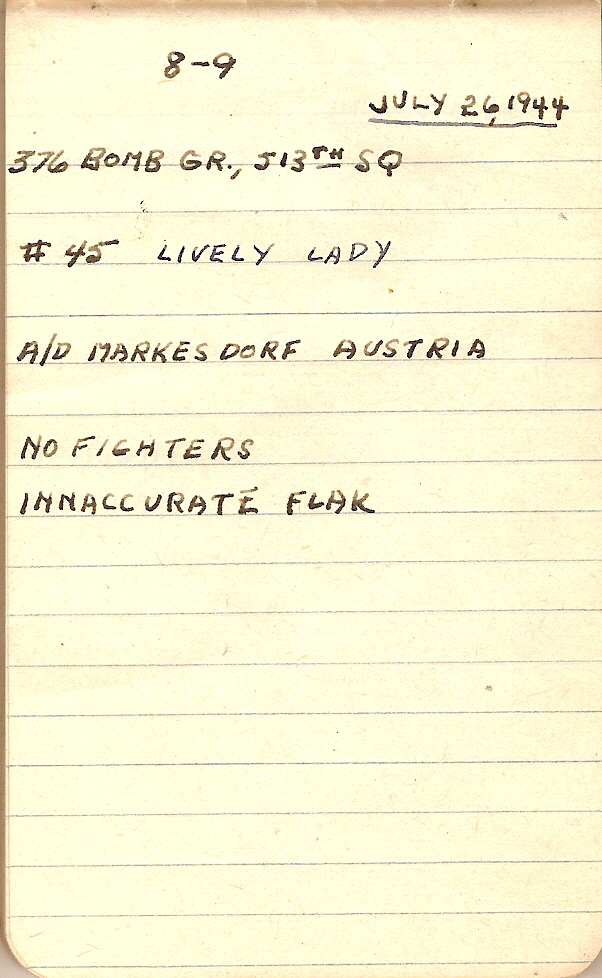 8-9
JULY 26, 1944
376 BOMB GR., 513TH SQ
# 45 LIVELY LADY
A/D MARKESDORF AUSTRIA
NO FIGHTERS
INNACCURATE FLAK